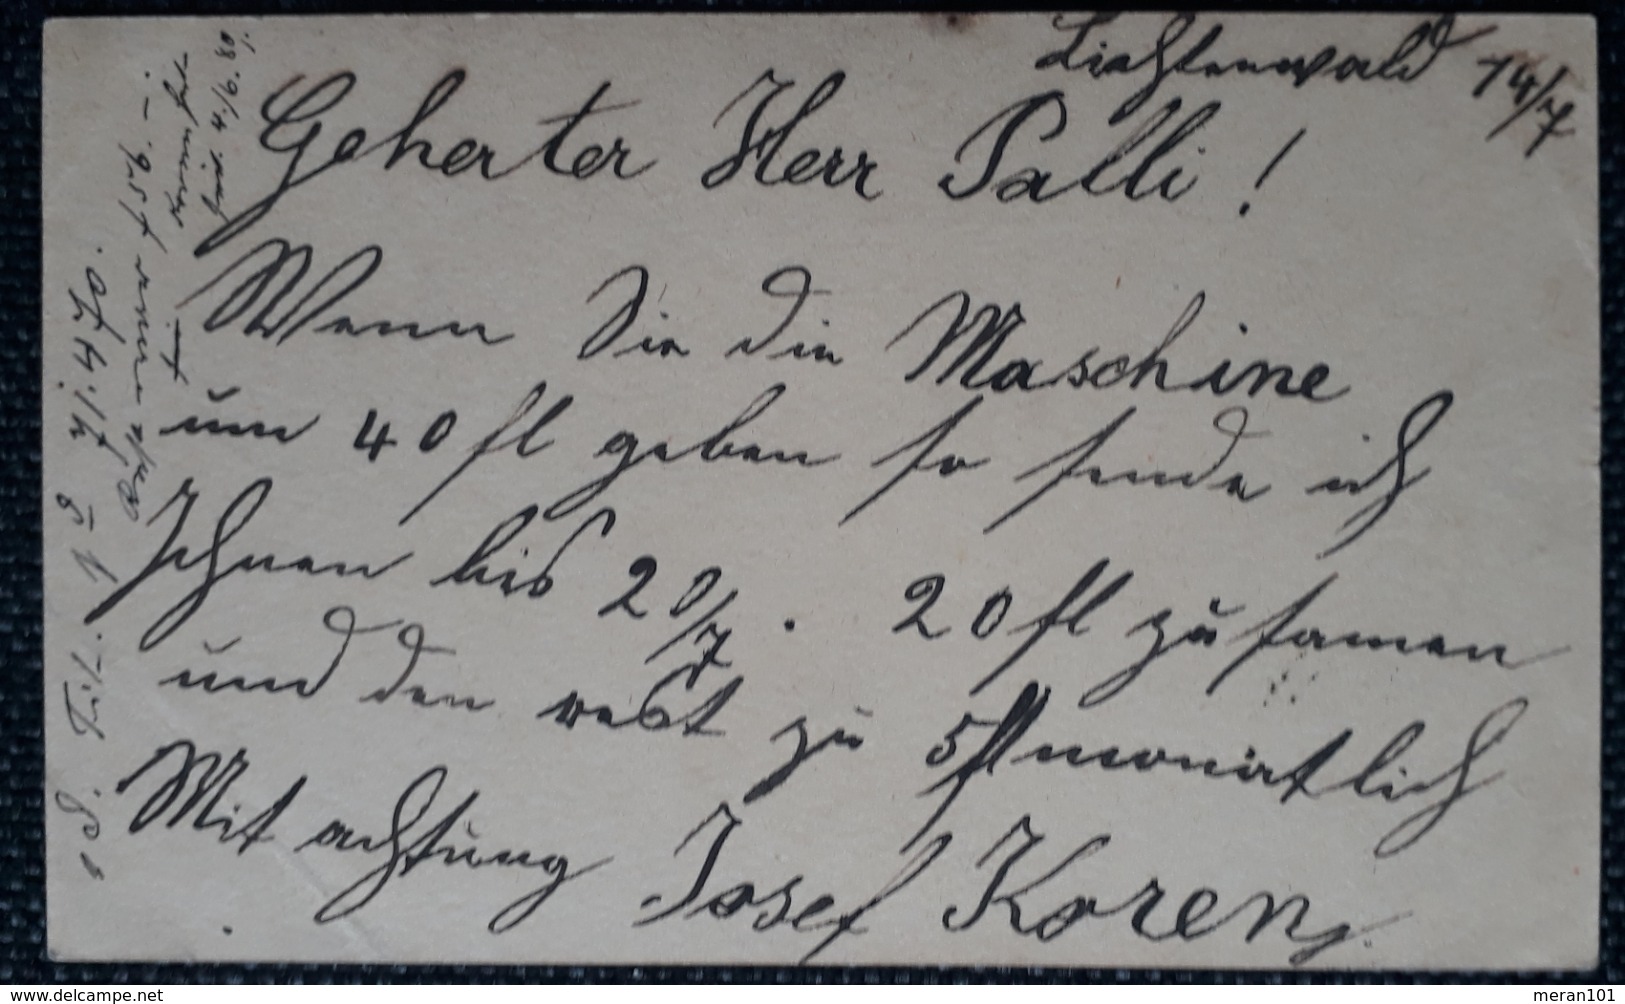 Lichtenwald 14/7
Geherter Herr Palli!
Wenn Sie die Maschine
um 40 fl geben so sende ich
Ihnen bis 20/7. 20 fl zusamen
und den rest zu 5 fl monatlich
Mit achtung Josef Koren
meran101